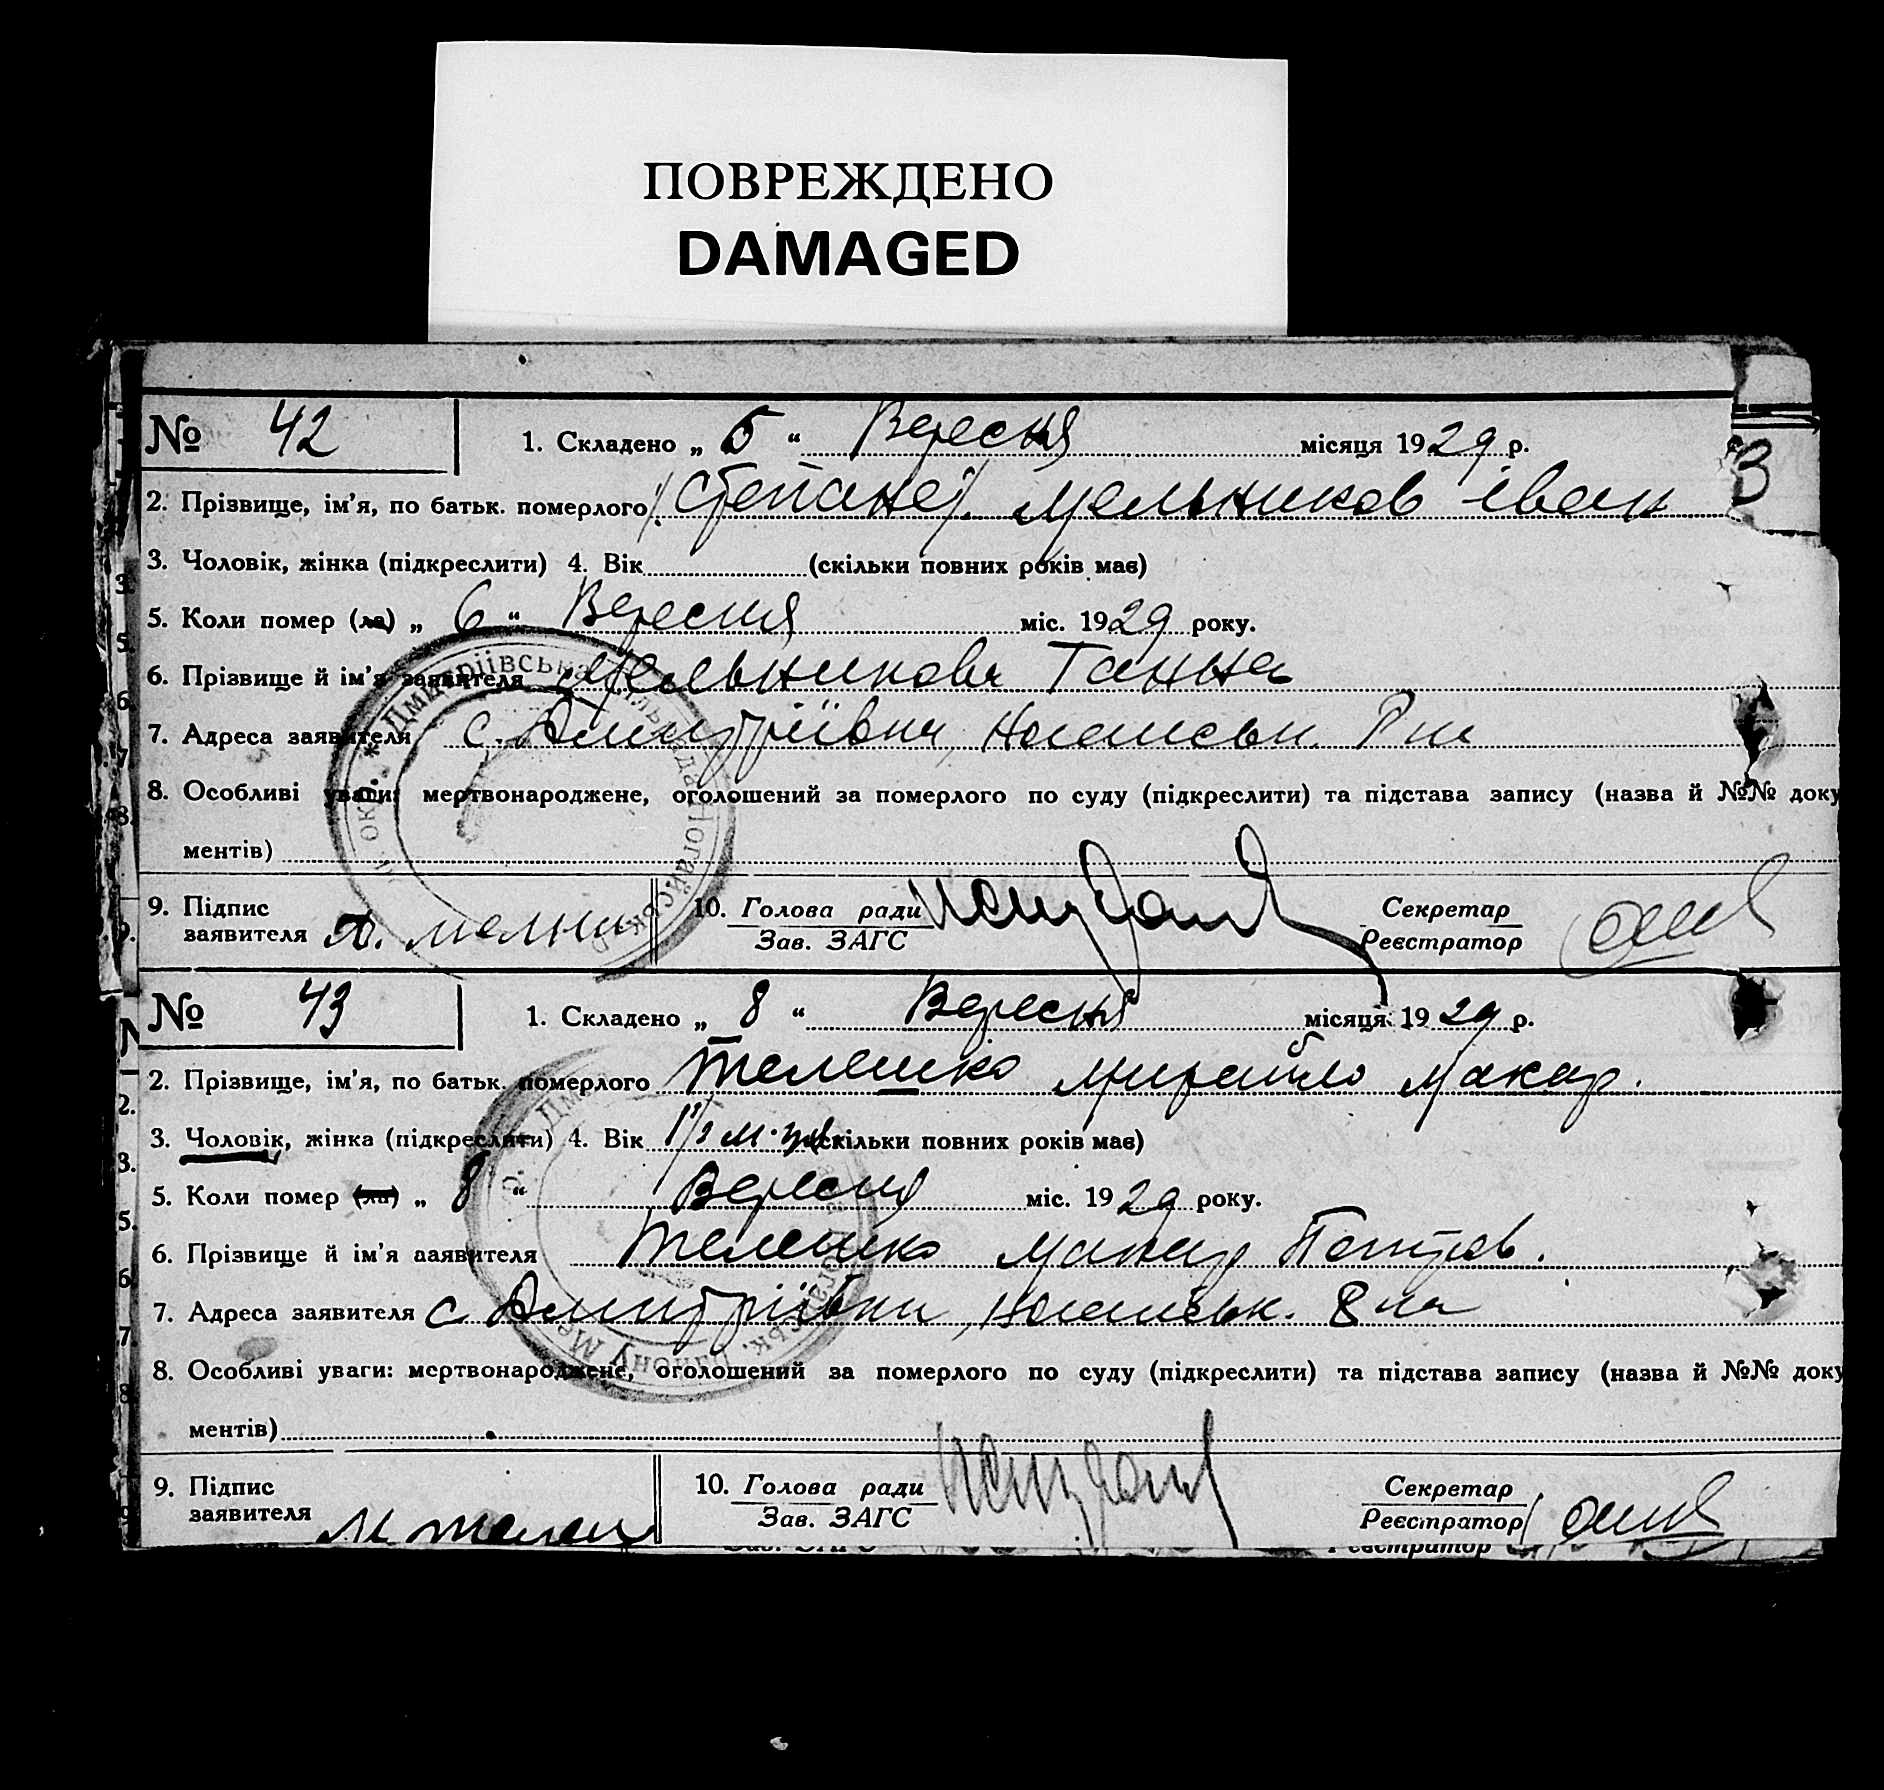 ПОВРЕЖДЕНО
DAMAGED
№ 42
1. Складено „ 5 “ Вересня місяця 1929 р.
2. Прізвище, ім'я, по батьк. померлого Мельников Іван
3. Чоловік, жінка (підкреслити) 4. Вік (скільки повних років має)
5. Коли помер (ла) „ 6 “ Вересня міс. 1929 року.
6. Прізвище й ім'я заявителя Мельникова Ганна
7. Адреса заявителя с. Дмитріївка, Ногайськ. Р-на
8. Особливі уваги: мертвонароджене, оголошений за померлого по суду (підкреслити) та підстава запису (назва й №№ доку
ментів)
9. Підпис
заявителя
10. Голова ради
Зав. ЗАГС
Секретар
Реєстратор
№ 43
1. Складено „ 8 “ Вересня місяця 1929 р.
2. Прізвище, ім'я, по батьк. померлого Телешко Михайло Макар.
3. Чоловік, жінка (підкреслити) 4. Вік (скільки повних років має)
5. Коли помер (ла) „ 8 “ Вересня міс. 1929 року.
6. Прізвище й ім'я заявителя Телешко Макар
7. Адреса заявителя с Дмитріївки, Ногайськ. Р-на
8. Особливі уваги: мертвонароджене, оголошений за померлого по суду (підкреслити) та підстава запису (назва й №№ доку
ментів)
9. Підпис
заявителя
10. Голова ради
Зав. ЗАГС
Секретар
Реєстратор